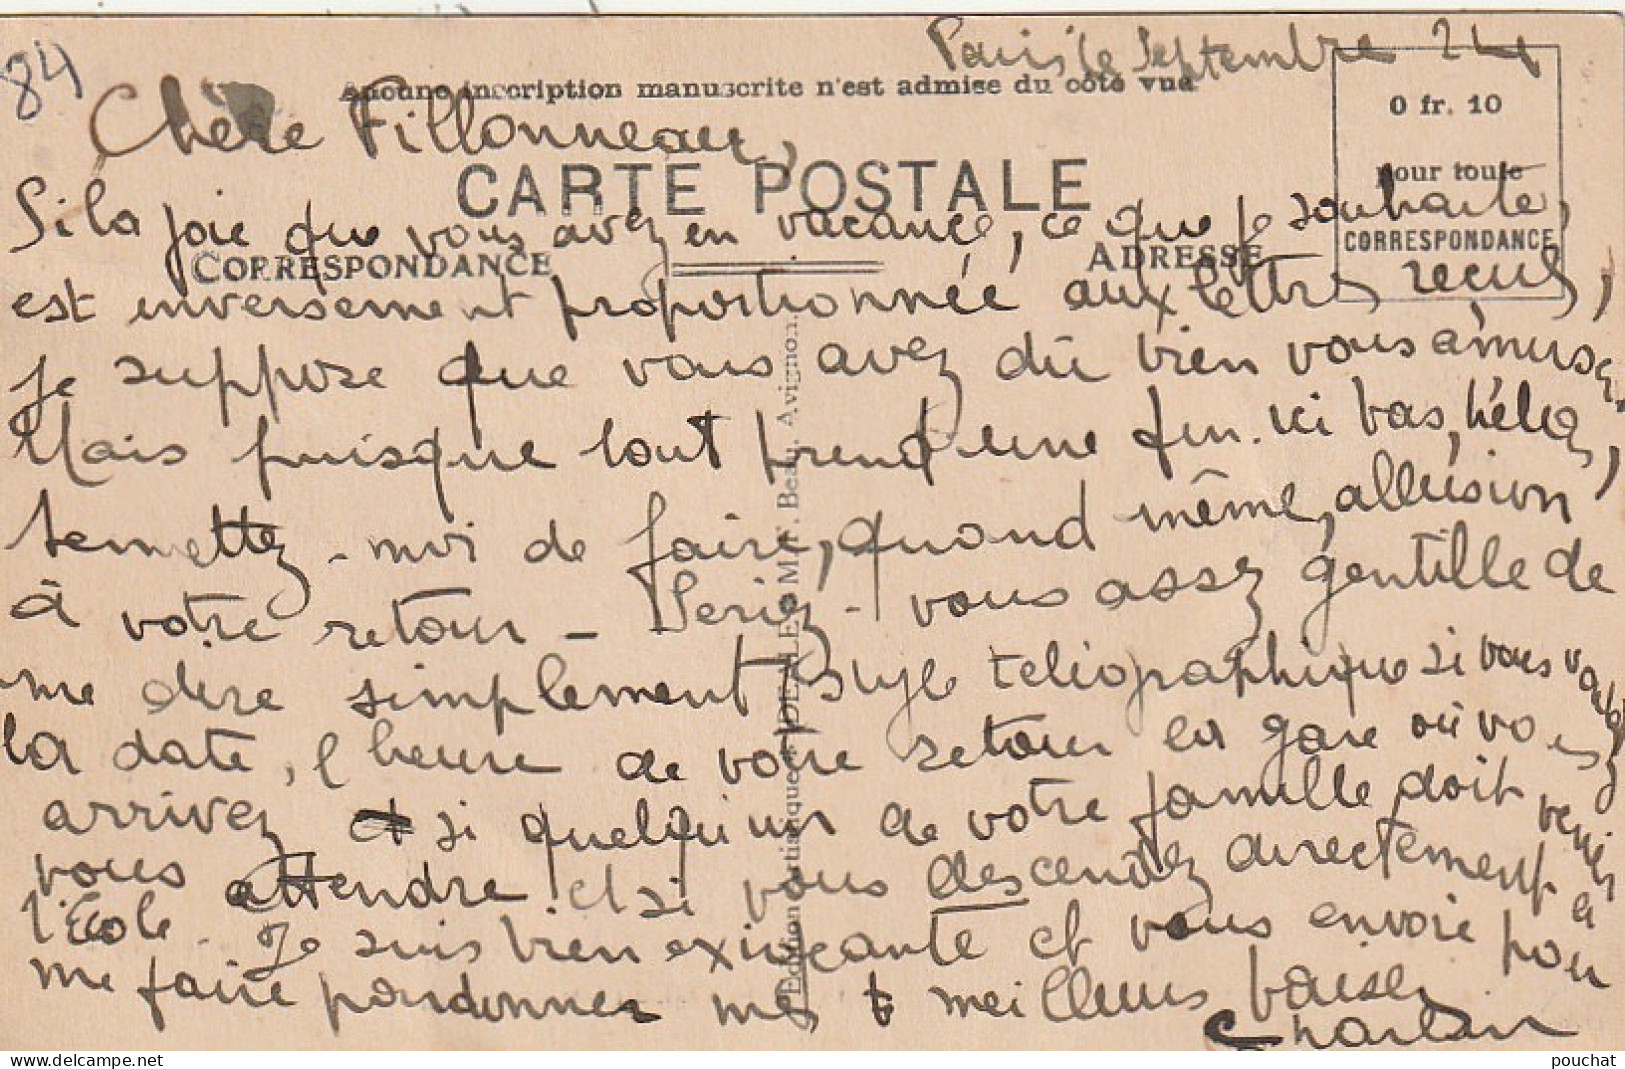 Paris le Septembre 24
84
Aucune inscription manuscrite n'est admise du côté vue
0 fr. 10
pour toute
CORRESPONDANCE
Chère Fillonneau,
CARTE POSTALE
CORRESPONDANCE
ADRESSE
Si la joie que vous avez en vacance, ce que je souhaite,
est inversement proportionnée aux lettres reçues,
je suppose que vous avez dû bien vous amuser.
Mais puisque tout prend une fin ici bas, hélas,
permettez-moi de faire, quand même, allusion
à votre retour - Seriez-vous assez gentille de
me dire simplement style télégraphique si vous voulez
la date, l'heure de votre retour la gare où vous
arrivez et si quelqu'un de votre famille doit venir
vous attendre et si vous descendez directement à
l'Ecole. Je suis bien exigeante et vous envoie pour
me faire pardonner mes meilleurs baisers
Charlin
Edition artistique M. Beau, Avignon.
delcampe.net
pouchat